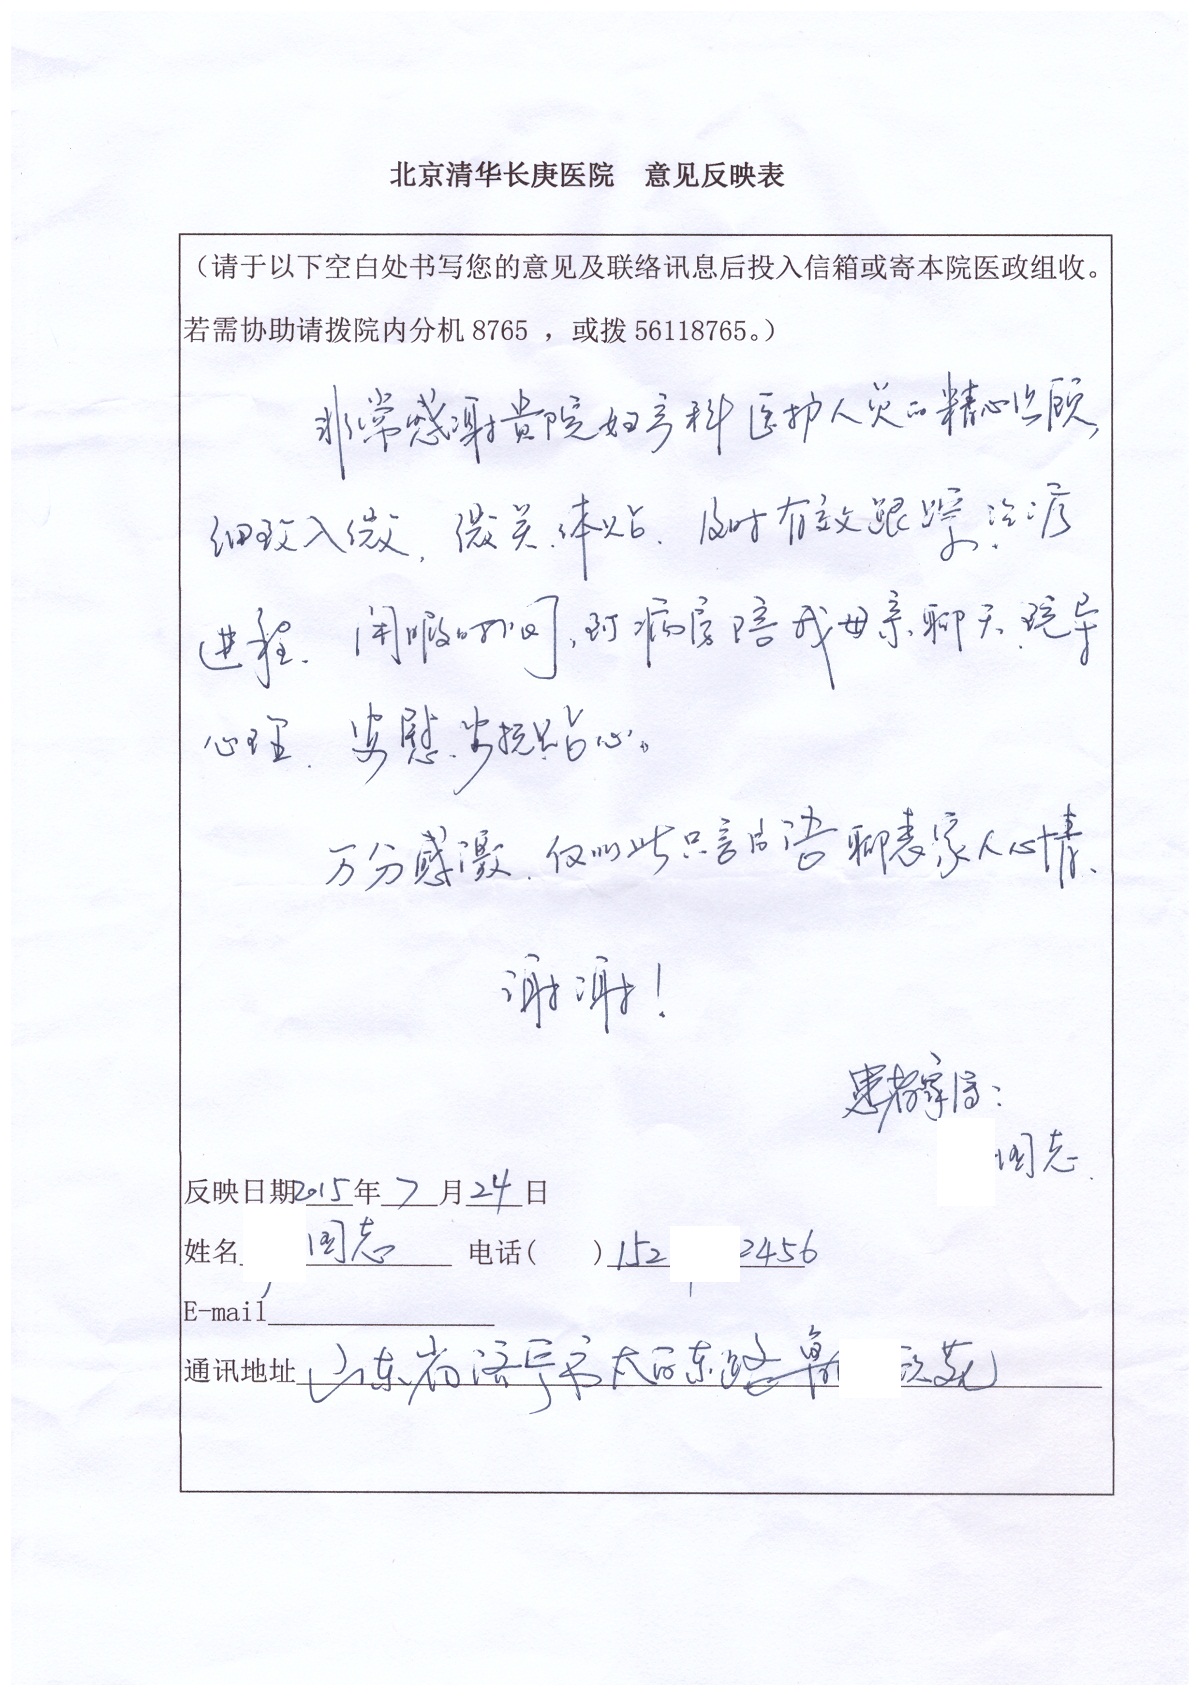 北京清华长庚医院 意见反映表
（请于以下空白处书写您的意见及联络讯息后投入信箱或寄本院医政组收。
若需协助请拨院内分机 8765 ，或拨 56118765。）
非常感谢贵院妇产科医护人员的精心照顾，
细致入微，微笑、体贴、及时有效跟踪治疗
进程、闲暇时间，到病房陪我母亲聊天、疏导
心理、安慰、安抚贴心。
万分感激，仅以此只言片语聊表家人心情、
谢谢！
患者家属：
国志
反映日期2015年7月24日
姓名 国志 电话( )152 2456
E-mail
通讯地址 山东省济宁市太白东路 苑